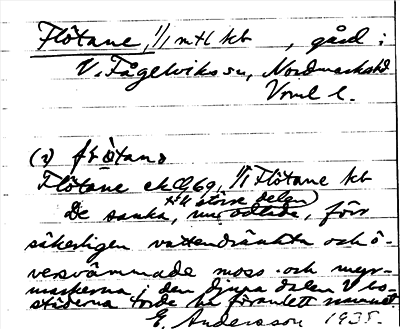 Flötane, 1/1 mtl kb , gård i
V. Fågelviks sn, Nordmarks hd
Vrml l.
(1) fløtanə
Flötane ek C969, 1/1 Flötane kb
till större delen
De sanka, nu odlade, förr
säkerligen vattendränkta och ö-
versvämmade moss- och myr-
markerna i den djupa dalen V bo-
städerna torde ha föranlett namnet.
E. Andersson 1935.